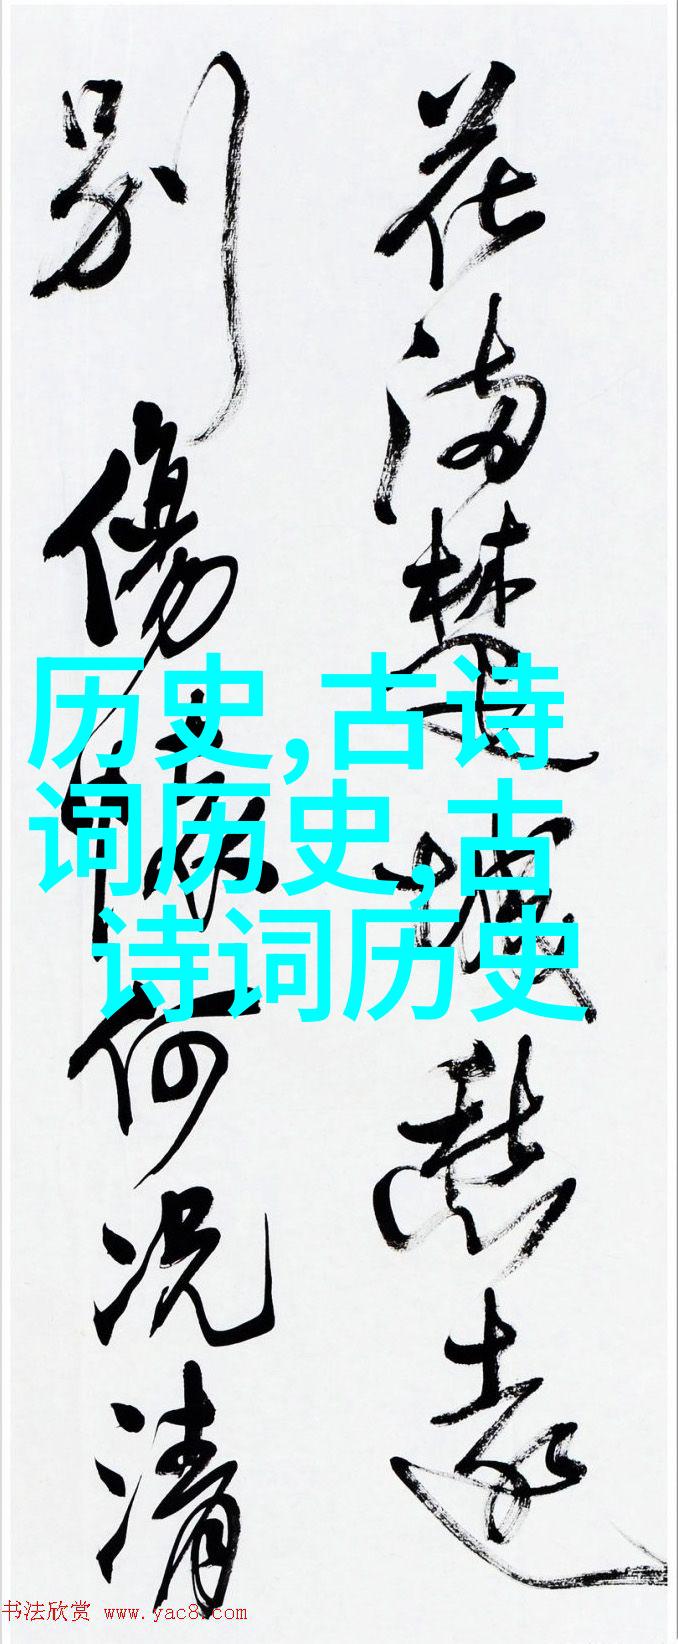 花满楚城愁遠
别傷何况清
历史,古诗
词历史,古
诗词历史
书法欣赏 www.yac8.com